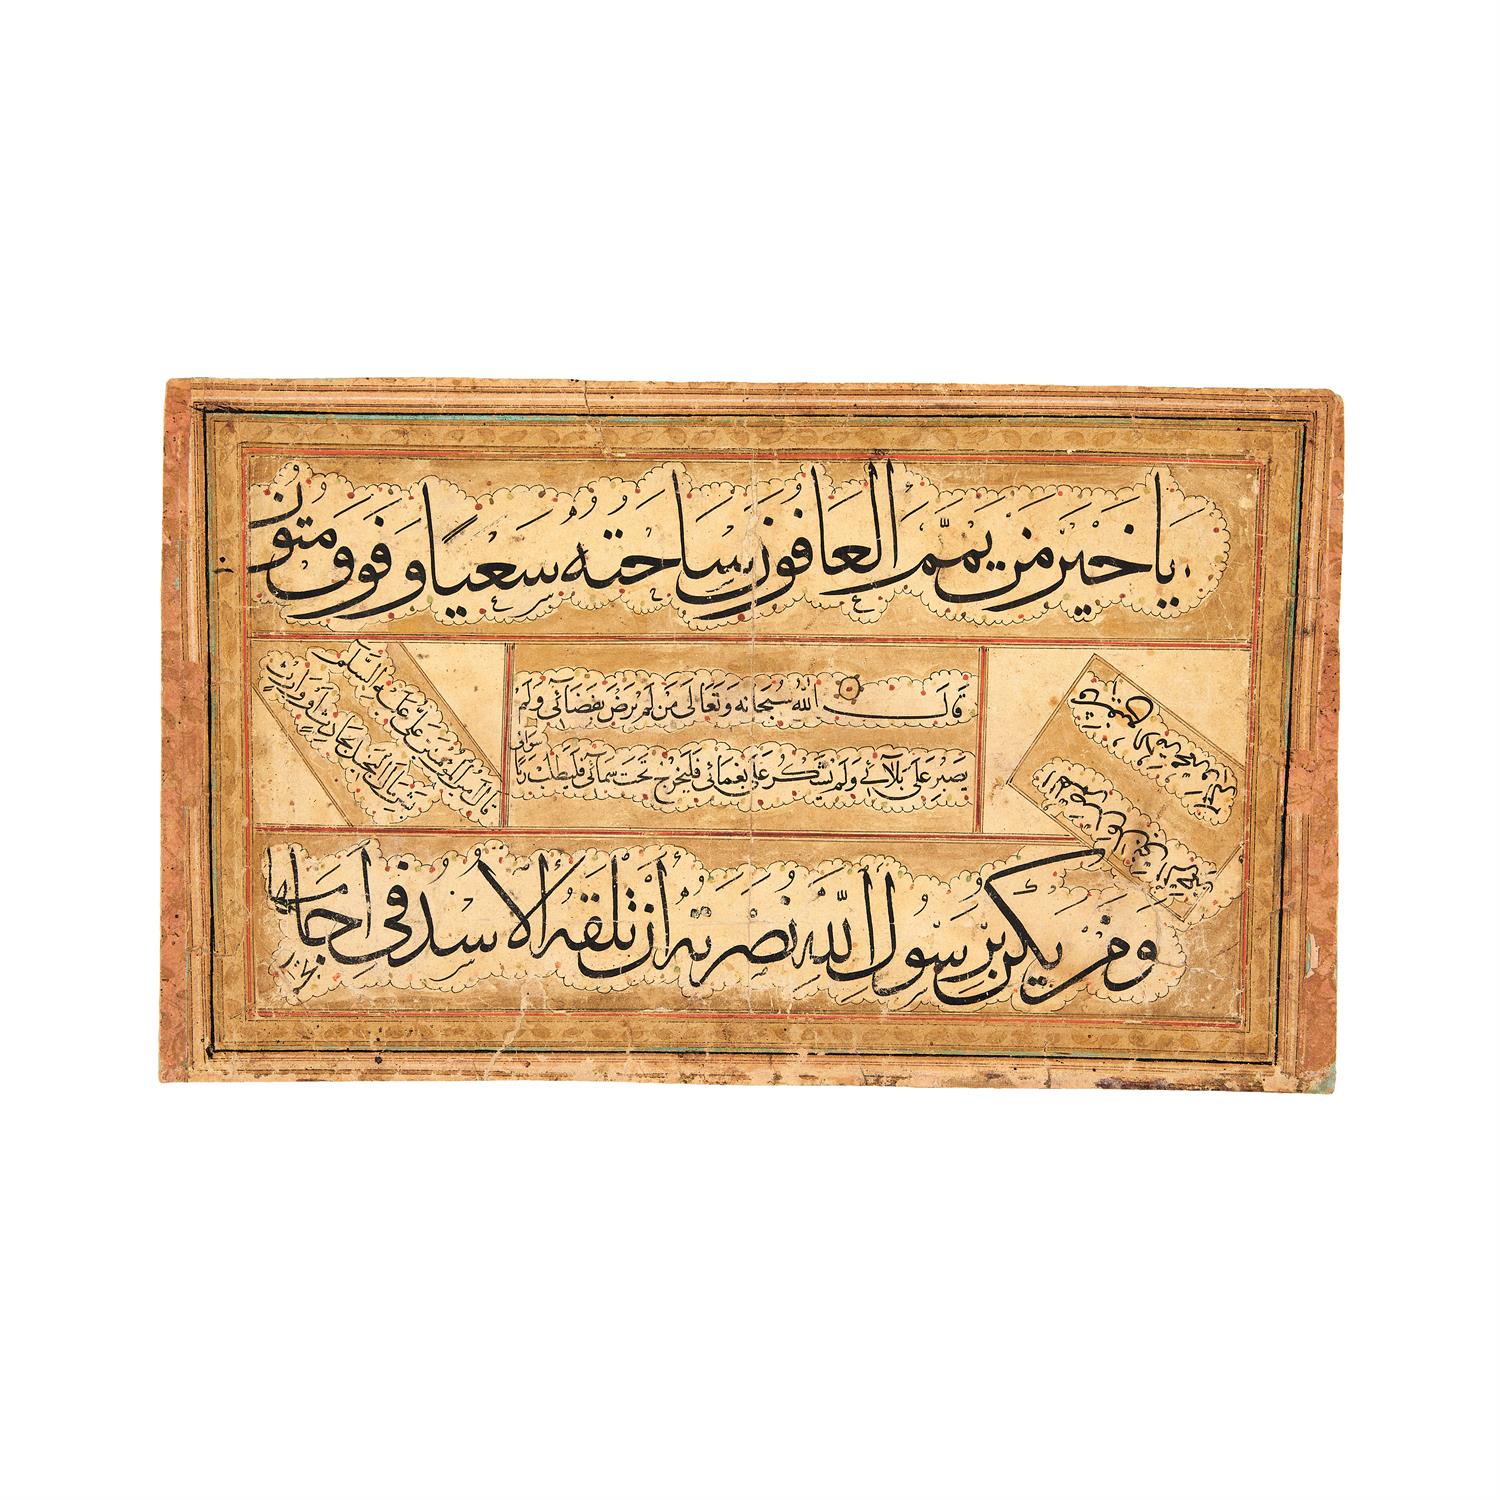 يا خير من يمم العافون ساحته سعيا وفوق متون
قال الله سبحانه وتعالى من لم يرض بقضائي ولم
يصبر على بلائي ولم يشكر على نعمائي فليخرج تحت سمائي فليطلب ربا سوائي
قال امير المؤمنين علي عليه السلم
بشر مال البخيل بحادث او وارث
ومن يكن برسول الله نصرته ان تلقه الاسد في اجامها تجم